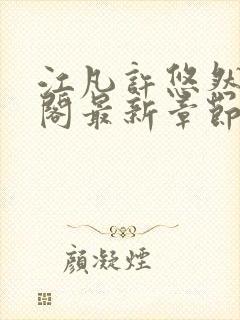 江凡許悠然
閣最新章節
顏凝煙